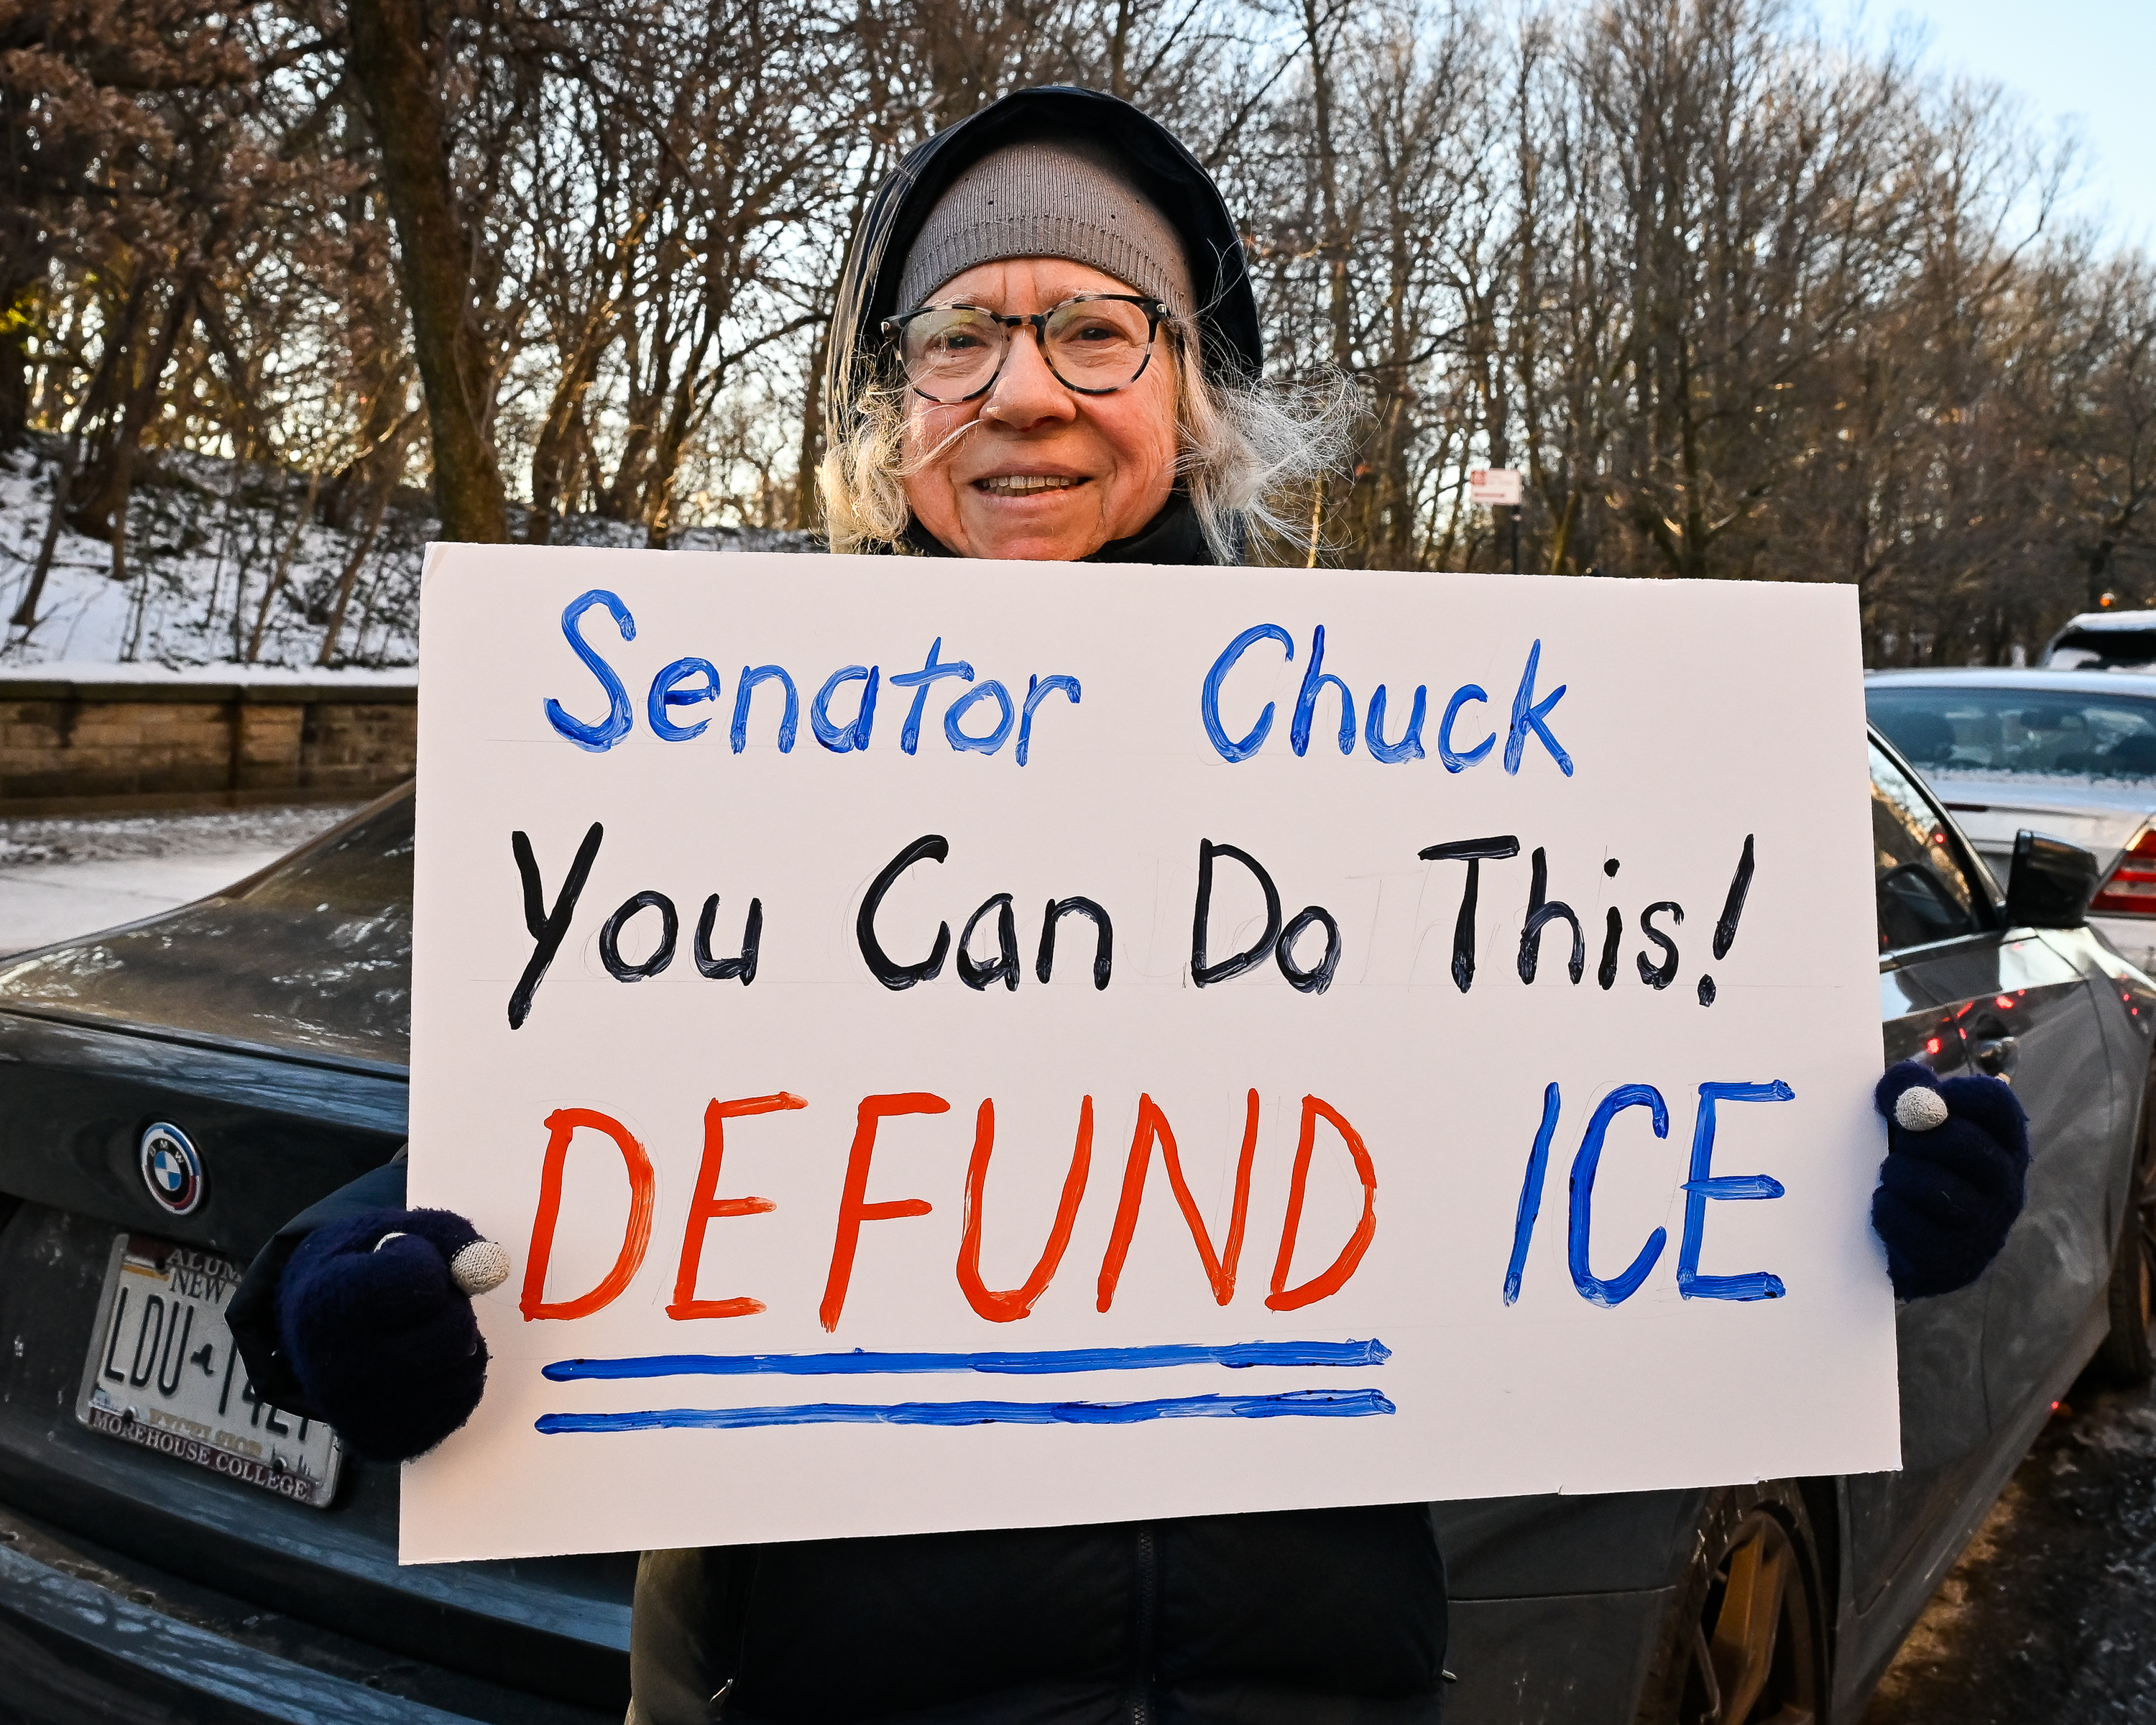 Senator Chuck
You Can Do This!
DEFUND ICE
BMW
NEW
LDU
MOREHOUSE COLLEGE